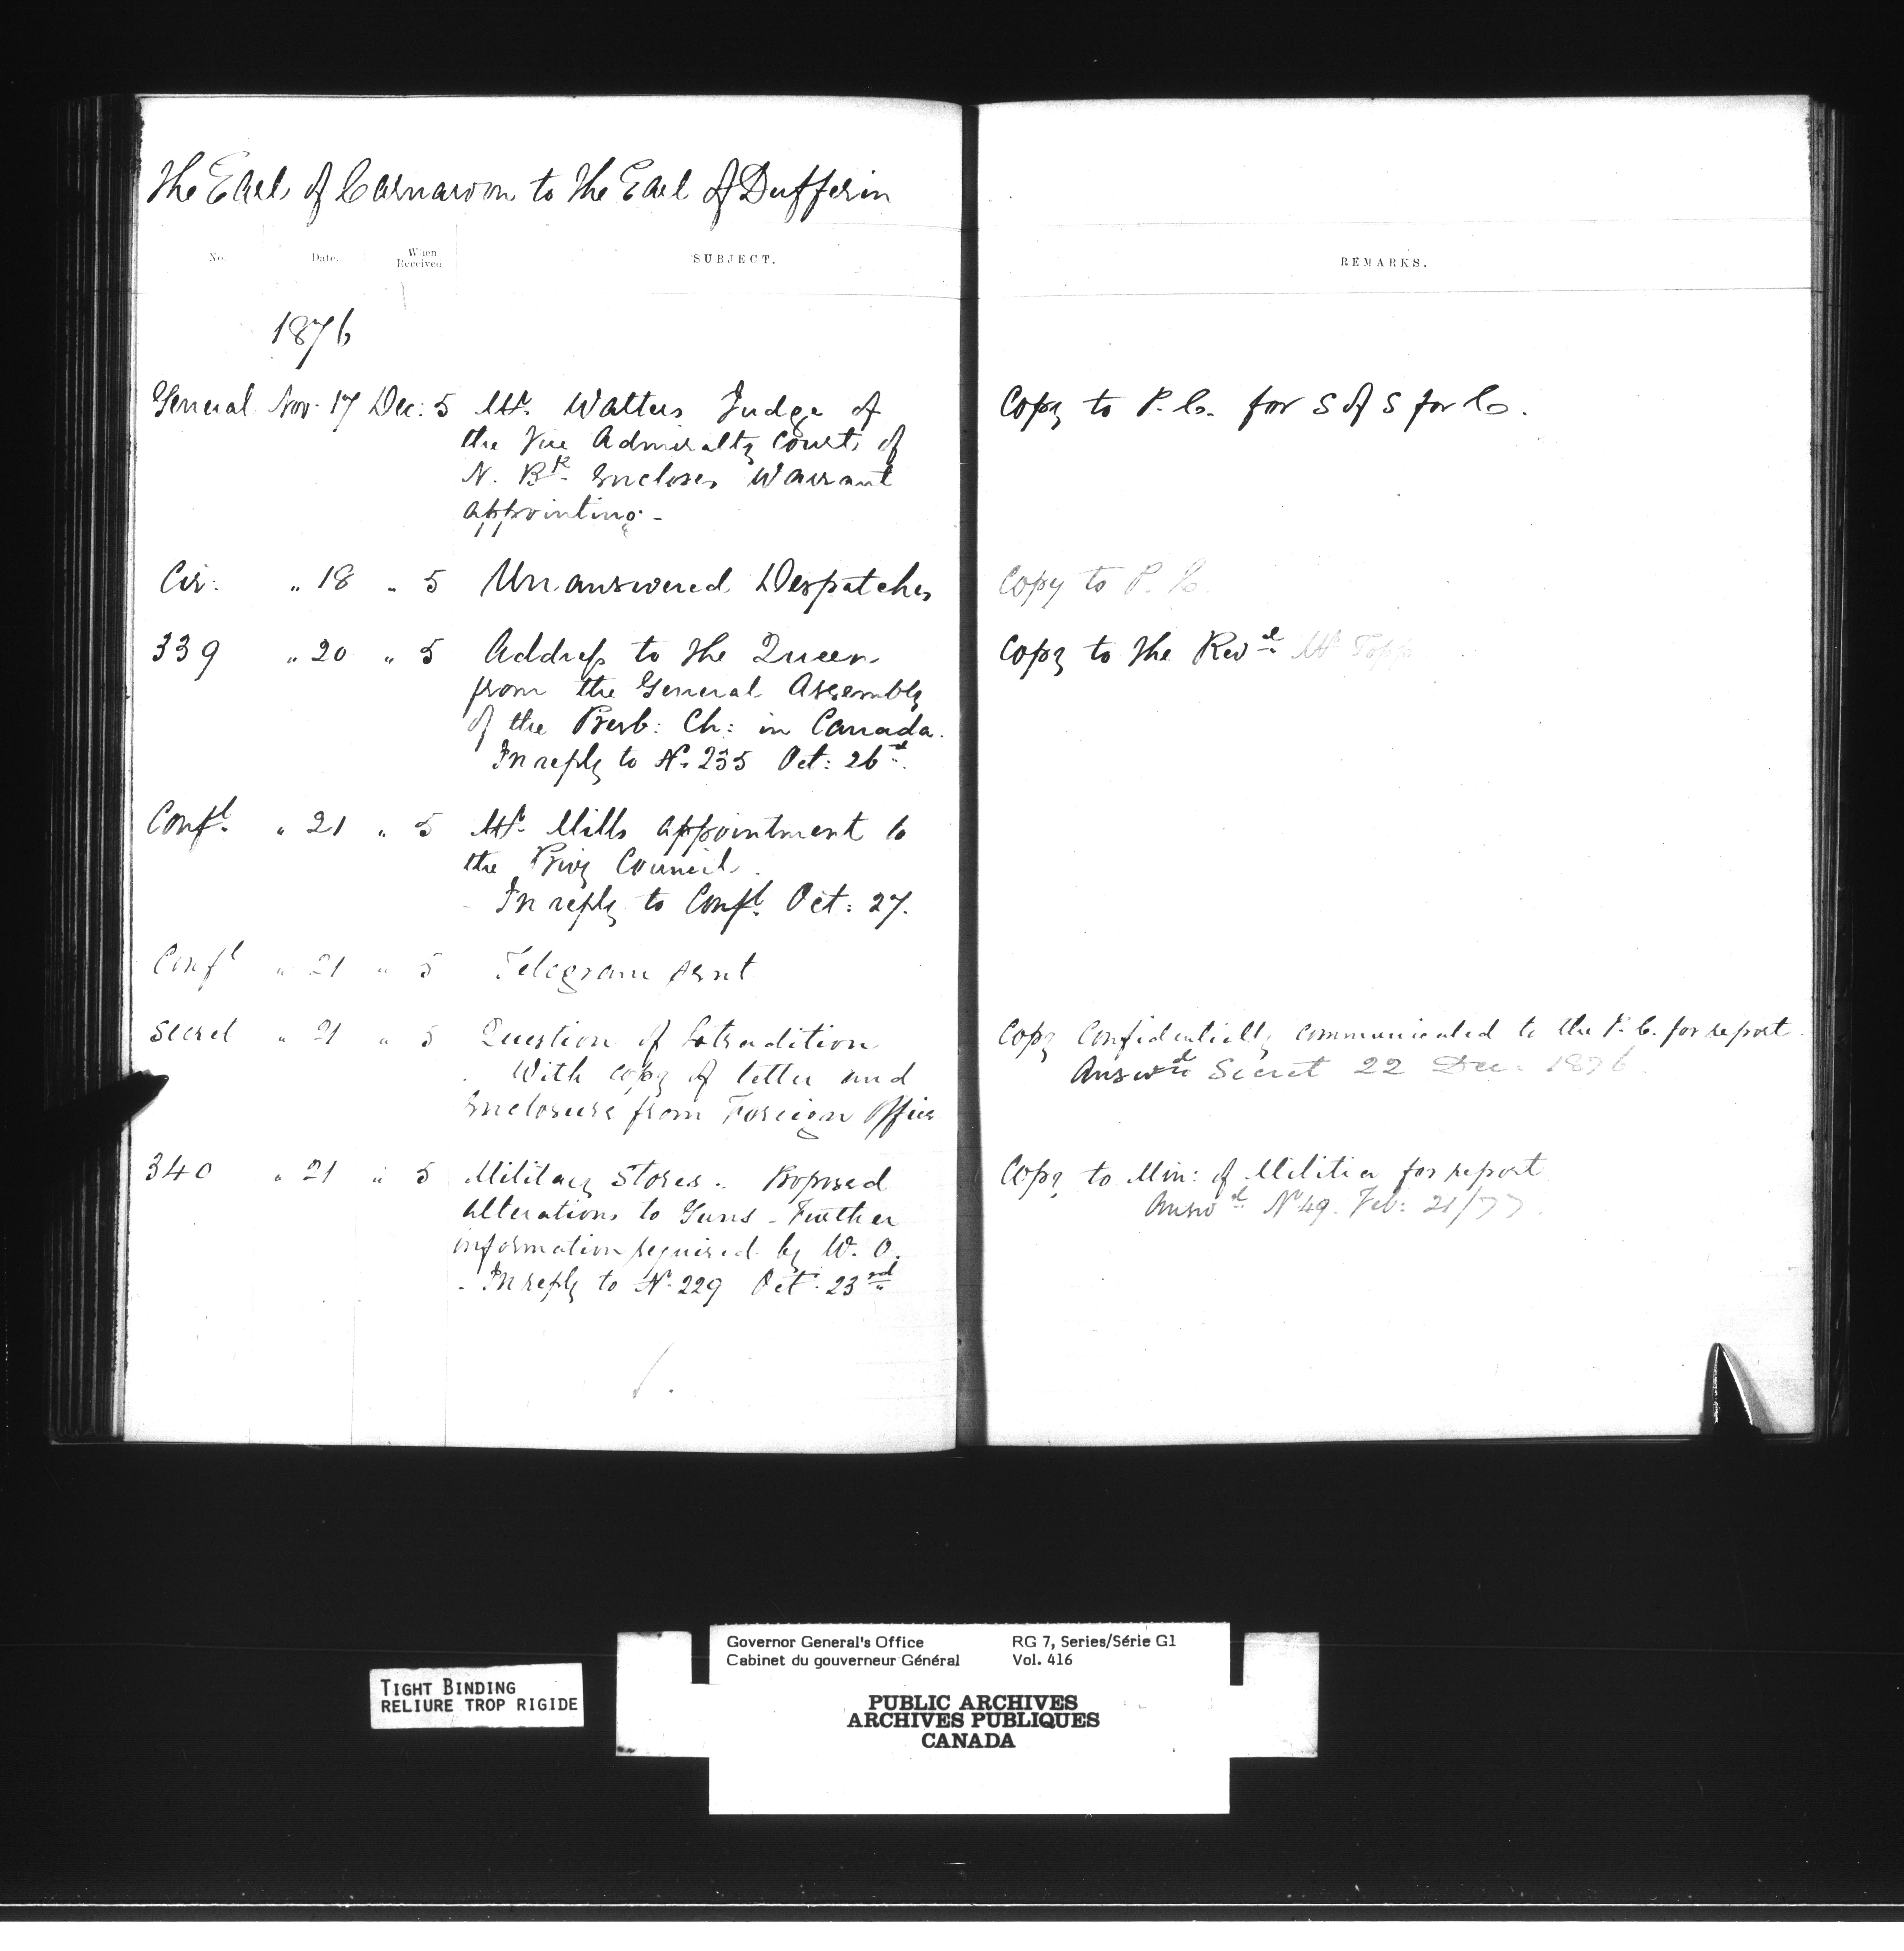 The Earl of Carnarvon to the Earl of Dufferin
No. Date. When Received SUBJECT. REMARKS.
1876
General Nov. 17 Dec: 5 Mr. Watters Judge of Copy to P. C. for S of S for C.
the Vice Admiralty Court of
N. Bk. Encloses Warrant
appointing.-
Cir: " 18 " 5 Unanswered Despatches Copy to P. C.
339 " 20 " 5 Address to the Queen Copy to the Revd Mr Topp
from the General Assembly
of the Presb: Ch: in Canada.
In reply to No. 235 Oct: 26th.
Confl. " 21 " 5 Mr. Mills appointment to
the Privy Council.
- In reply to Confl. Oct: 27.
Confl " 21 " 5 Telegram sent
Secret " 21 " 5 Question of Extradition Copy Confidentially communicated to the P. C. for report.
With copy of letter and Answd Secret 22 Dec. 1876.
Enclosure from Foreign Office
340 " 21 " 5 Military Stores. Proposed Copy to Min: of Militia for report
Alterations to Guns - Further Answd. No 49. Feb: 21/77.
information required by W. O.
- In reply to No. 229 Oct. 23rd
TIGHT BINDING
RELIURE TROP RIGIDE
Governor General's Office RG 7, Series/Série G1
Cabinet du gouverneur Général Vol. 416
PUBLIC ARCHIVES
ARCHIVES PUBLIQUES
CANADA